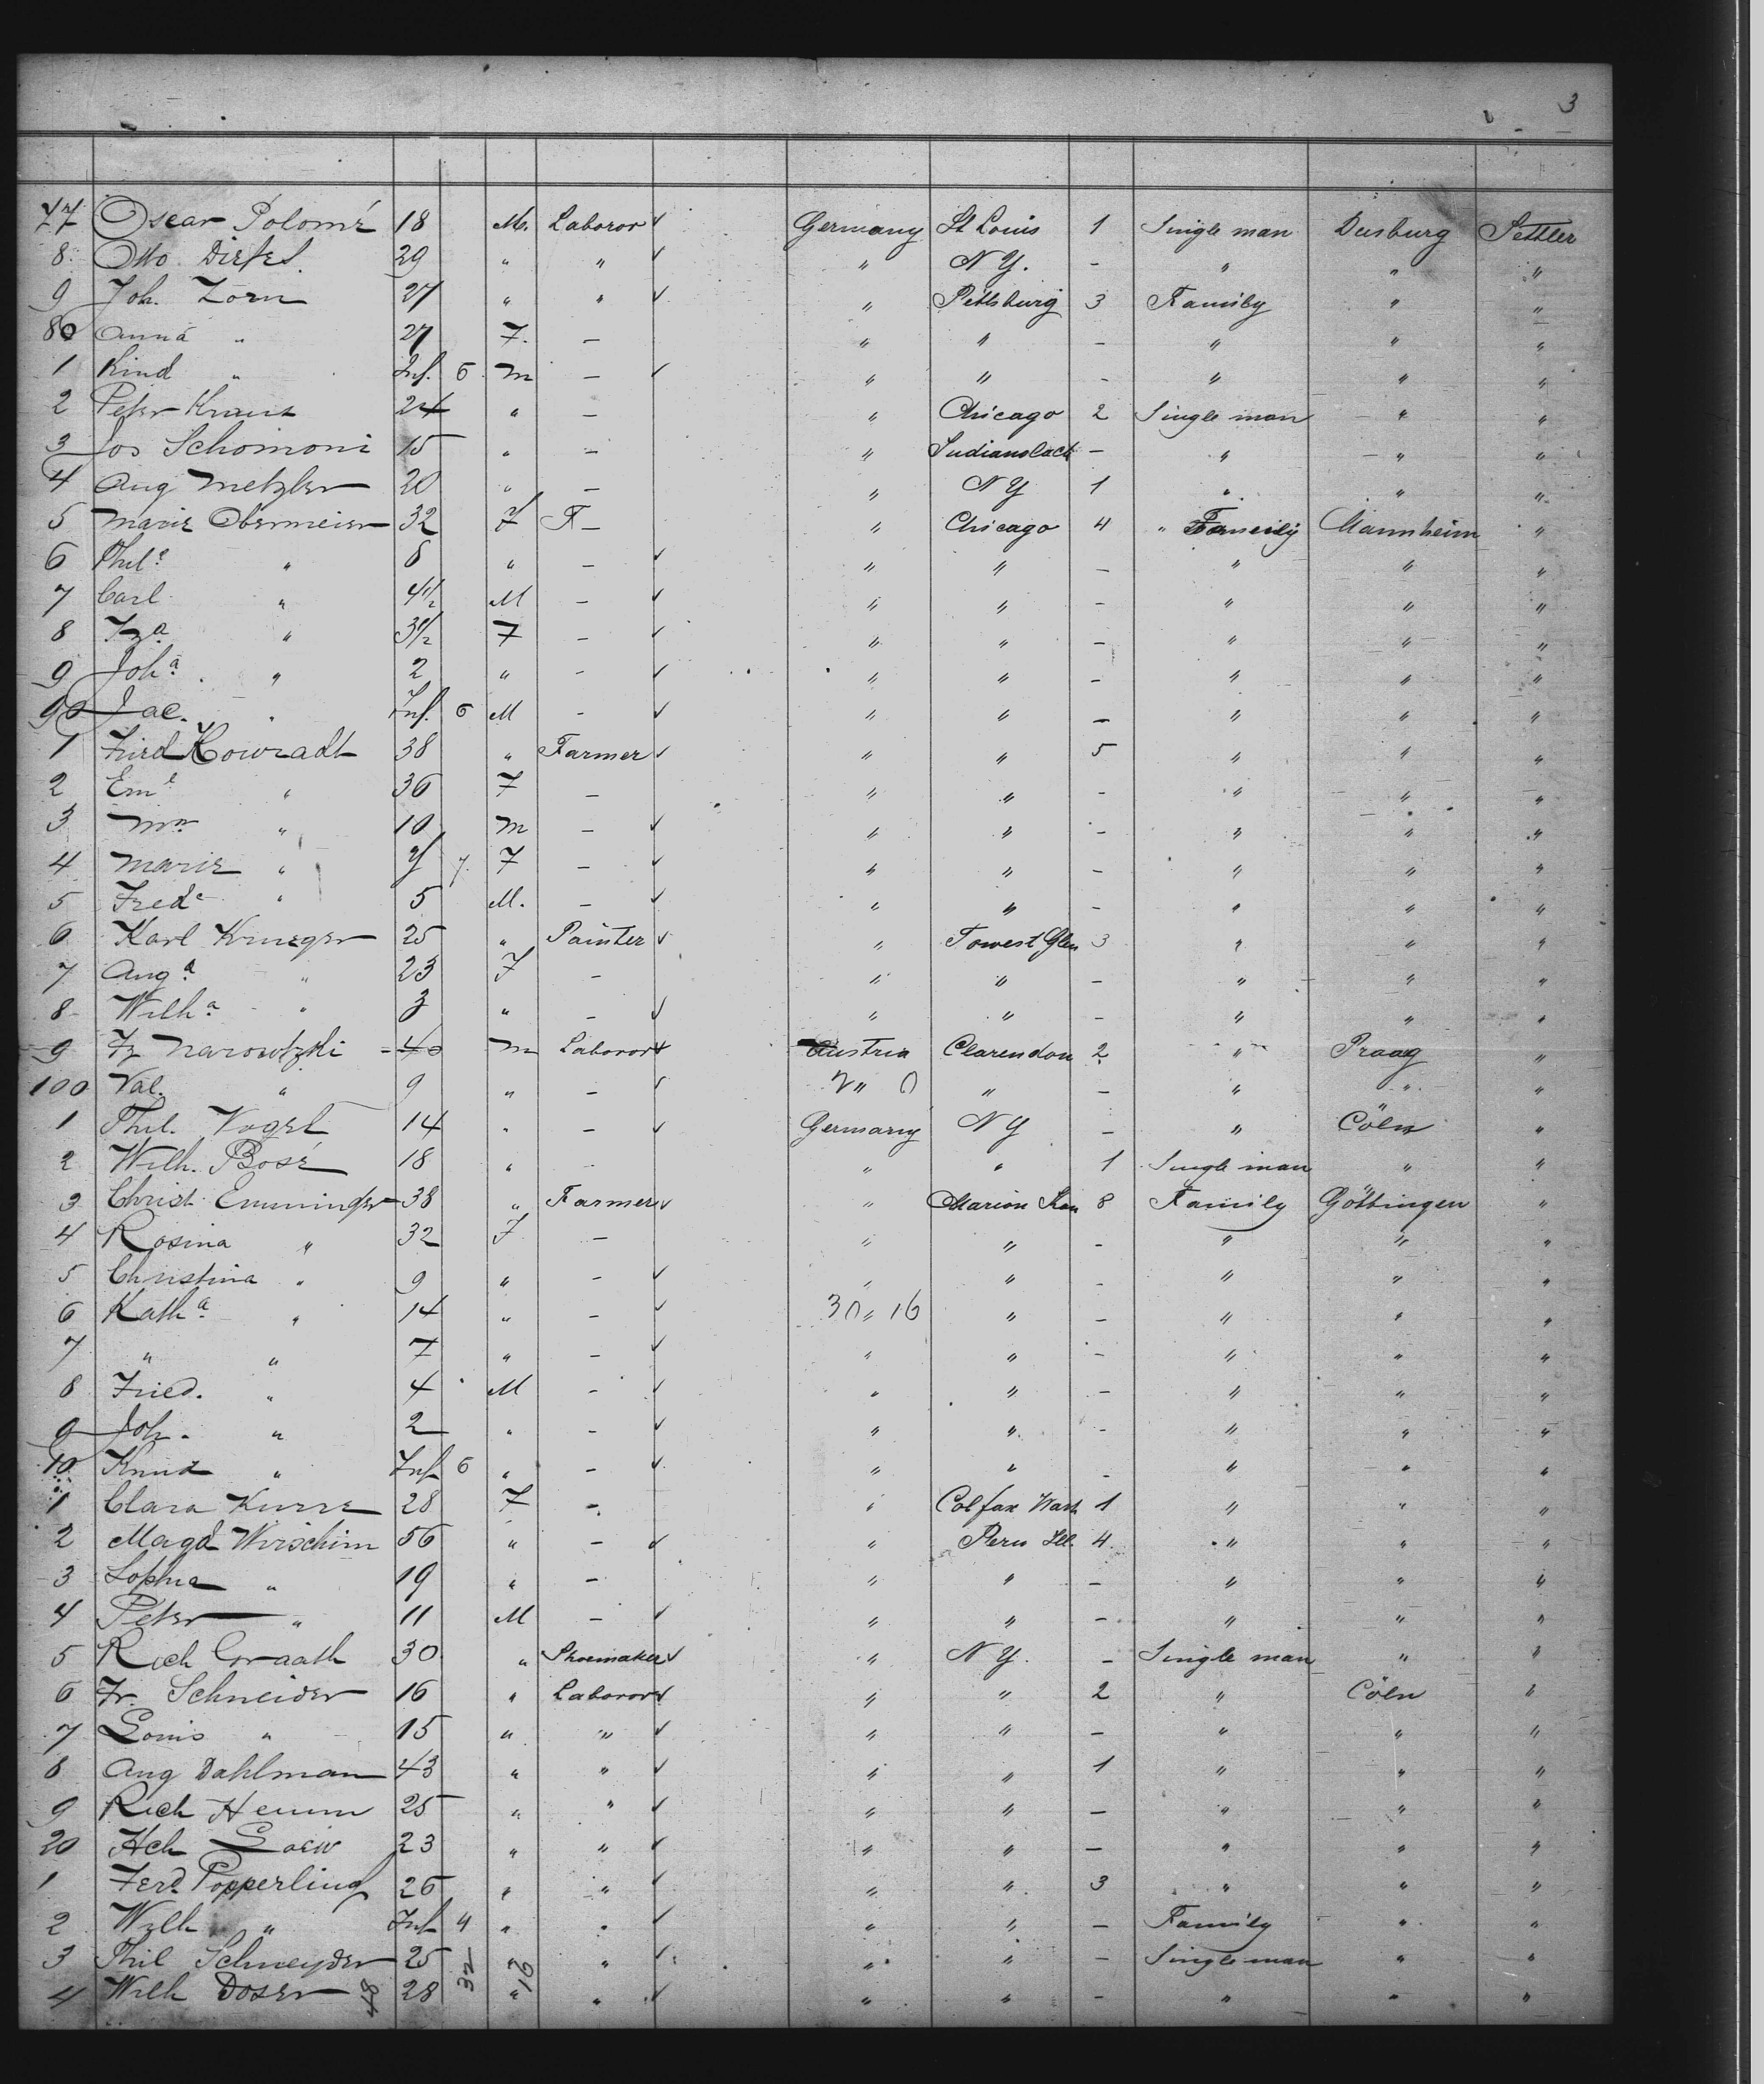 3
77 Oscar Polomé 18 M. Laboror ✓ Germany St Louis 1 Single man Duisburg Settler
8 Otto Diefel 29 " " ✓ " N Y. - " " "
9 Joh. Zorn 27 " " ✓ " Pittsburg 3 Family " "
80 Anna " 27 F. - " " - " " "
1 Kind " Inf. 6 M - ✓ " " - " " "
2 Peter Kraus 24 " - " Chicago 2 Single man " "
3 Jos Schomoni 15 " - " - " " "
4 Aug Metzler 20 " - " N Y 1 " " "
5 Marie Obermeier 32 F F - " Chicago 4 " Family Mannheim "
6 Phile " 8 " - ✓ " " - " " "
7 Carl " 4 1/2 M - ✓ " " - " " "
8 Fza " 3 1/2 F - ✓ " " - " " "
9 Joha " 2 " - ✓ " " - " " "
90 Jac. " Inf. 6 M - ✓ " " - " " "
1 Fried Kowradt 38 " Farmer ✓ " " 5 " " "
2 Eme " 36 F - " " - " " "
3 Wm " 10 M - ✓ " " - " " "
4 Marie " 7 F - ✓ " " - " " "
5 Frede " 5 M. - ✓ " " - " " "
6 Karl Krueger 25 " Painter ✓ " Forest Glen 3 " " "
7 Auga " 23 F - " " - " " "
8 Wilha " 3 " - ✓ " " - " " "
9 Fz Narowtzki 40 M Laboror ✓ Austria Clarendon 2 " Praag "
100 Val. " 9 " - ✓ " " - " " "
1 Phil. Vogel 14 " - ✓ Germany N Y - " Cöln "
2 Wilh. Bosé 18 " - " " 1 Single man " "
3 Christ Emminger 38 " Farmer ✓ " Marion Kan 8 Family Göttingen "
4 Rosina " 32 F - " " - " " "
5 Christina " 9 " - ✓ " " - " " "
6 Katha " 14 " - ✓ 30 " 16 " - " " "
7 " " 7 " - ✓ " " - " " "
8 Fried. " 4 M - ✓ " " - " " "
9 Joh. " 2 " - ✓ " " - " " "
10 " Inf 6 " - ✓ " " - " " "
1 Clara Kurre 28 F - " Colfax Wash 1 " " "
2 Magd Wirschim 56 " - ✓ " Peru Ill. 4 " " "
3 Sophia " 19 " - " " - " " "
4 Peter " 11 M - ✓ " " - " " "
5 Rich Graath 30 " Shoemaker ✓ " N Y. - Single man " "
6 Fr. Schneider 16 " Laboror ✓ " " 2 " Cöln "
7 Louis " 15 " " ✓ " " - " " "
8 Aug Dahlman 43 " " ✓ " " 1 " " "
9 Rich Hemm 25 " " ✓ " " - " " "
20 Hch Loew 23 " " ✓ " " - " " "
1 Ferd. Popperling 26 " " ✓ " " 3 " " "
2 Wilh " Inf 4 " " ✓ " " - Family " "
3 Phil Schneyder 25 " " ✓ " " - Single man " "
4 Wilh Doser 28 " " ✓ " " - " " "
48 32 16